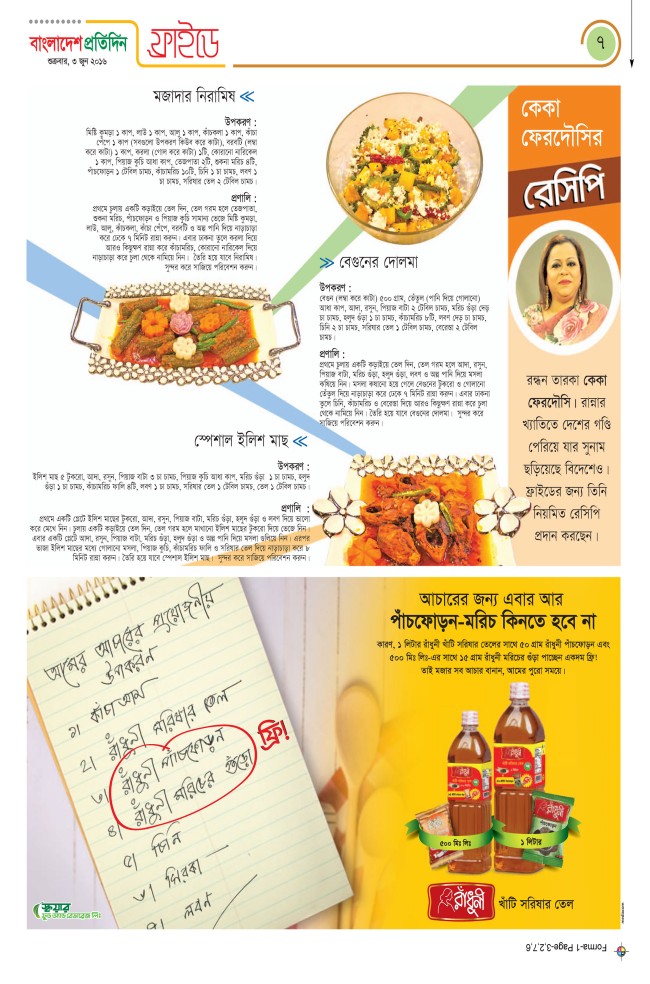 বাংলাদেশ প্রতিদিন
শুক্রবার, ৩ জুন ২০১৬
ফ্রাইডে
৭
মজাদার নিরামিষ
উপকরণ :
মিষ্টি কুমড়া ১ কাপ, লাউ ১ কাপ, আলু ১ কাপ, কাঁচকলা ১ কাপ, কাঁচা
পেঁপে ১ কাপ (সবগুলো উপকরণ কিউব করে কাটা), বরবটি (লম্বা
করে কাটা) ১ কাপ, করলা (গোল করে কাটা) ১টি, কোরানো নারিকেল
১ কাপ, পিয়াজ কুচি আধা কাপ, তেজপাতা ২টি, শুকনা মরিচ ৪টি,
পাঁচফোড়ন ১ টেবিল চামচ, কাঁচামরিচ ১০টি, চিনি ১ চা চামচ, লবণ ১
চা চামচ, সরিষার তেল ২ টেবিল চামচ।
প্রণালি :
প্রথমে চুলায় একটি কড়াইয়ে তেল দিন, তেল গরম হলে তেজপাতা,
শুকনা মরিচ, পাঁচফোড়ন ও পিয়াজ কুচি সামান্য ভেজে মিষ্টি কুমড়া,
লাউ, আলু, কাঁচকলা, কাঁচা পেঁপে, বরবটি ও অল্প পানি দিয়ে নাড়াচাড়া
করে ঢেকে ৭ মিনিট রান্না করুন। এবার ঢাকনা তুলে করলা দিয়ে
আরও কিছুক্ষণ রান্না করে কাঁচামরিচ, কোরানো নারিকেল দিয়ে
নাড়াচাড়া করে চুলা থেকে নামিয়ে নিন। তৈরি হয়ে যাবে নিরামিষ।
সুন্দর করে সাজিয়ে পরিবেশন করুন।
বেগুনের দোলমা
উপকরণ :
বেগুন (লম্বা করে কাটা) ৫০০ গ্রাম, তেঁতুল (পানি দিয়ে গোলানো)
আধা কাপ, আদা, রসুন, পিয়াজ বাটা ২ টেবিল চামচ, মরিচ গুঁড়া দেড়
চা চামচ, হলুদ গুঁড়া ১ চা চামচ, কাঁচামরিচ ৮টি, লবণ দেড় চা চামচ,
চিনি ২ চা চামচ, সরিষার তেল ১ টেবিল চামচ, বেরেস্তা ২ টেবিল
চামচ।
প্রণালি :
প্রথমে চুলায় একটি কড়াইয়ে তেল দিন, তেল গরম হলে আদা, রসুন,
পিয়াজ বাটা, মরিচ গুঁড়া, হলুদ গুঁড়া, লবণ ও অল্প পানি দিয়ে মসলা
কষিয়ে নিন। মসলা কষানো হয়ে গেলে বেগুনের টুকরো ও গোলানো
তেঁতুল দিয়ে নাড়াচাড়া করে ঢেকে ৭ মিনিট রান্না করুন। এবার ঢাকনা
তুলে চিনি, কাঁচামরিচ ও বেরেস্তা দিয়ে আরও কিছুক্ষণ রান্না করে চুলা
থেকে নামিয়ে নিন। তৈরি হয়ে যাবে বেগুনের দোলমা। সুন্দর করে
সাজিয়ে পরিবেশন করুন।
কেকা
ফেরদৌসির
রেসিপি
রন্ধন তারকা কেকা
ফেরদৌসি। রান্নার
খ্যাতিতে দেশের গণ্ডি
পেরিয়ে যার সুনাম
ছড়িয়েছে বিদেশেও।
ফ্রাইডের জন্য তিনি
নিয়মিত রেসিপি
প্রদান করছেন।
স্পেশাল ইলিশ মাছ
উপকরণ :
ইলিশ মাছ ৫ টুকরো, আদা, রসুন, পিয়াজ বাটা ৩ চা চামচ, পিয়াজ কুচি আধা কাপ, মরিচ গুঁড়া ১ চা চামচ, হলুদ
গুঁড়া ১ চা চামচ, কাঁচামরিচ ফালি ৪টি, লবণ ১ চা চামচ, সরিষার তেল ১ টেবিল চামচ, তেল ১ টেবিল চামচ।
প্রণালি :
প্রথমে একটি প্লেটে ইলিশ মাছের টুকরো, আদা, রসুন, পিয়াজ বাটা, মরিচ গুঁড়া, হলুদ গুঁড়া ও লবণ দিয়ে ভালো
করে মেখে নিন। চুলায় একটি কড়াইয়ে তেল দিন, তেল গরম হলে মাখানো ইলিশ মাছের টুকরো দিয়ে ভেজে নিন।
এবার একটি প্লেটে আদা, রসুন, পিয়াজ বাটা, মরিচ গুঁড়া, হলুদ গুঁড়া ও অল্প পানি দিয়ে মসলা গুলিয়ে নিন। এরপর
ভাজা ইলিশ মাছের মধ্যে গোলানো মসলা, পিয়াজ কুচি, কাঁচামরিচ ফালি ও সরিষার তেল দিয়ে নাড়াচাড়া করে ৮
মিনিট রান্না করুন। তৈরি হয়ে যাবে স্পেশাল ইলিশ মাছ। সুন্দর করে সাজিয়ে পরিবেশন করুন।
আমের আচারের প্রয়োজনীয়
উপকরণ
১। কাঁচা আম
২। রাঁধুনী সরিষার তেল
৩। রাঁধুনী পাঁচফোড়ন
৪। রাঁধুনী মরিচের গুঁড়ো
ফ্রি!
৫। চিনি
৬। সিরকা
লবণ
আচারের জন্য এবার আর
পাঁচফোড়ন-মরিচ কিনতে হবে না
কারণ, ১ লিটার রাঁধুনী খাঁটি সরিষার তেলের সাথে ৫০ গ্রাম রাঁধুনী পাঁচফোড়ন এবং
৫০০ মিঃ লিঃ-এর সাথে ১৫ গ্রাম রাঁধুনী মরিচের গুঁড়া পাচ্ছেন একদম ফ্রি!
তাই মজার সব আচার বানান, আমের পুরো সময়ে।
রাঁধুনী
রাঁধুনী
৫০০ মিঃ লিঃ
১ লিটার
রাঁধুনী
খাঁটি সরিষার তেল
স্কয়ার
ফুড অ্যান্ড বেভারেজ লিঃ
Forma-1 Page-3,2,7,6